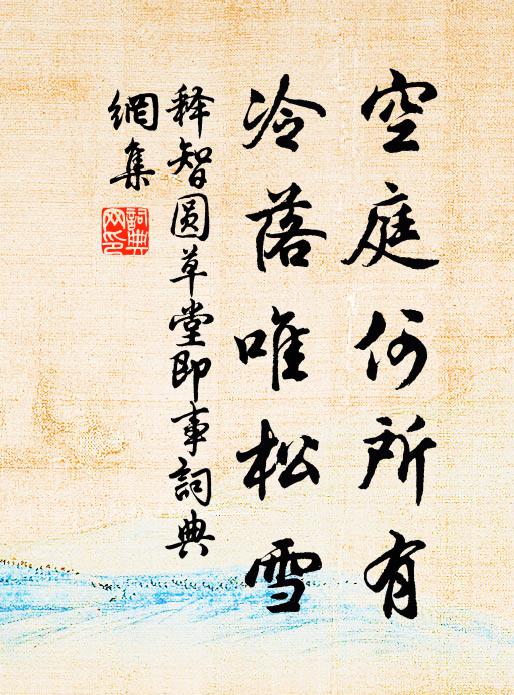 空庭何所有
冷落唯松雪
释智圆草堂即事詞典
網集
詞典
网印